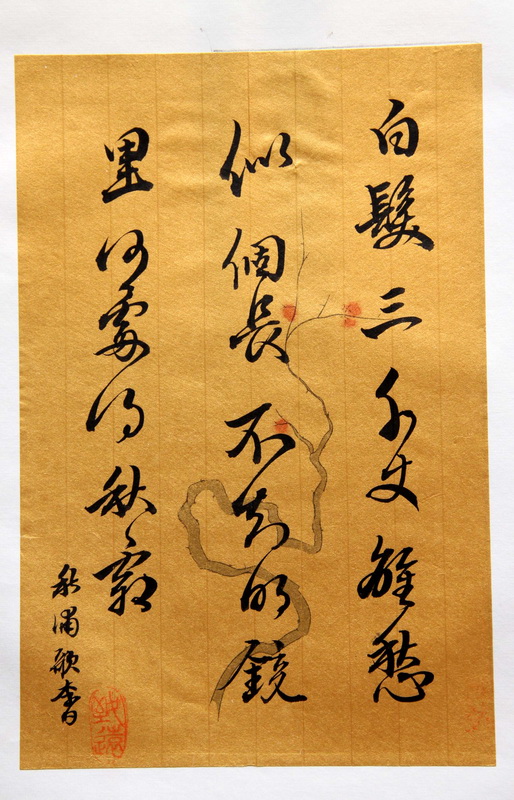 白髮三千丈離愁
似個長不知明鏡
里何處得秋霜
秋浦歌
致遠